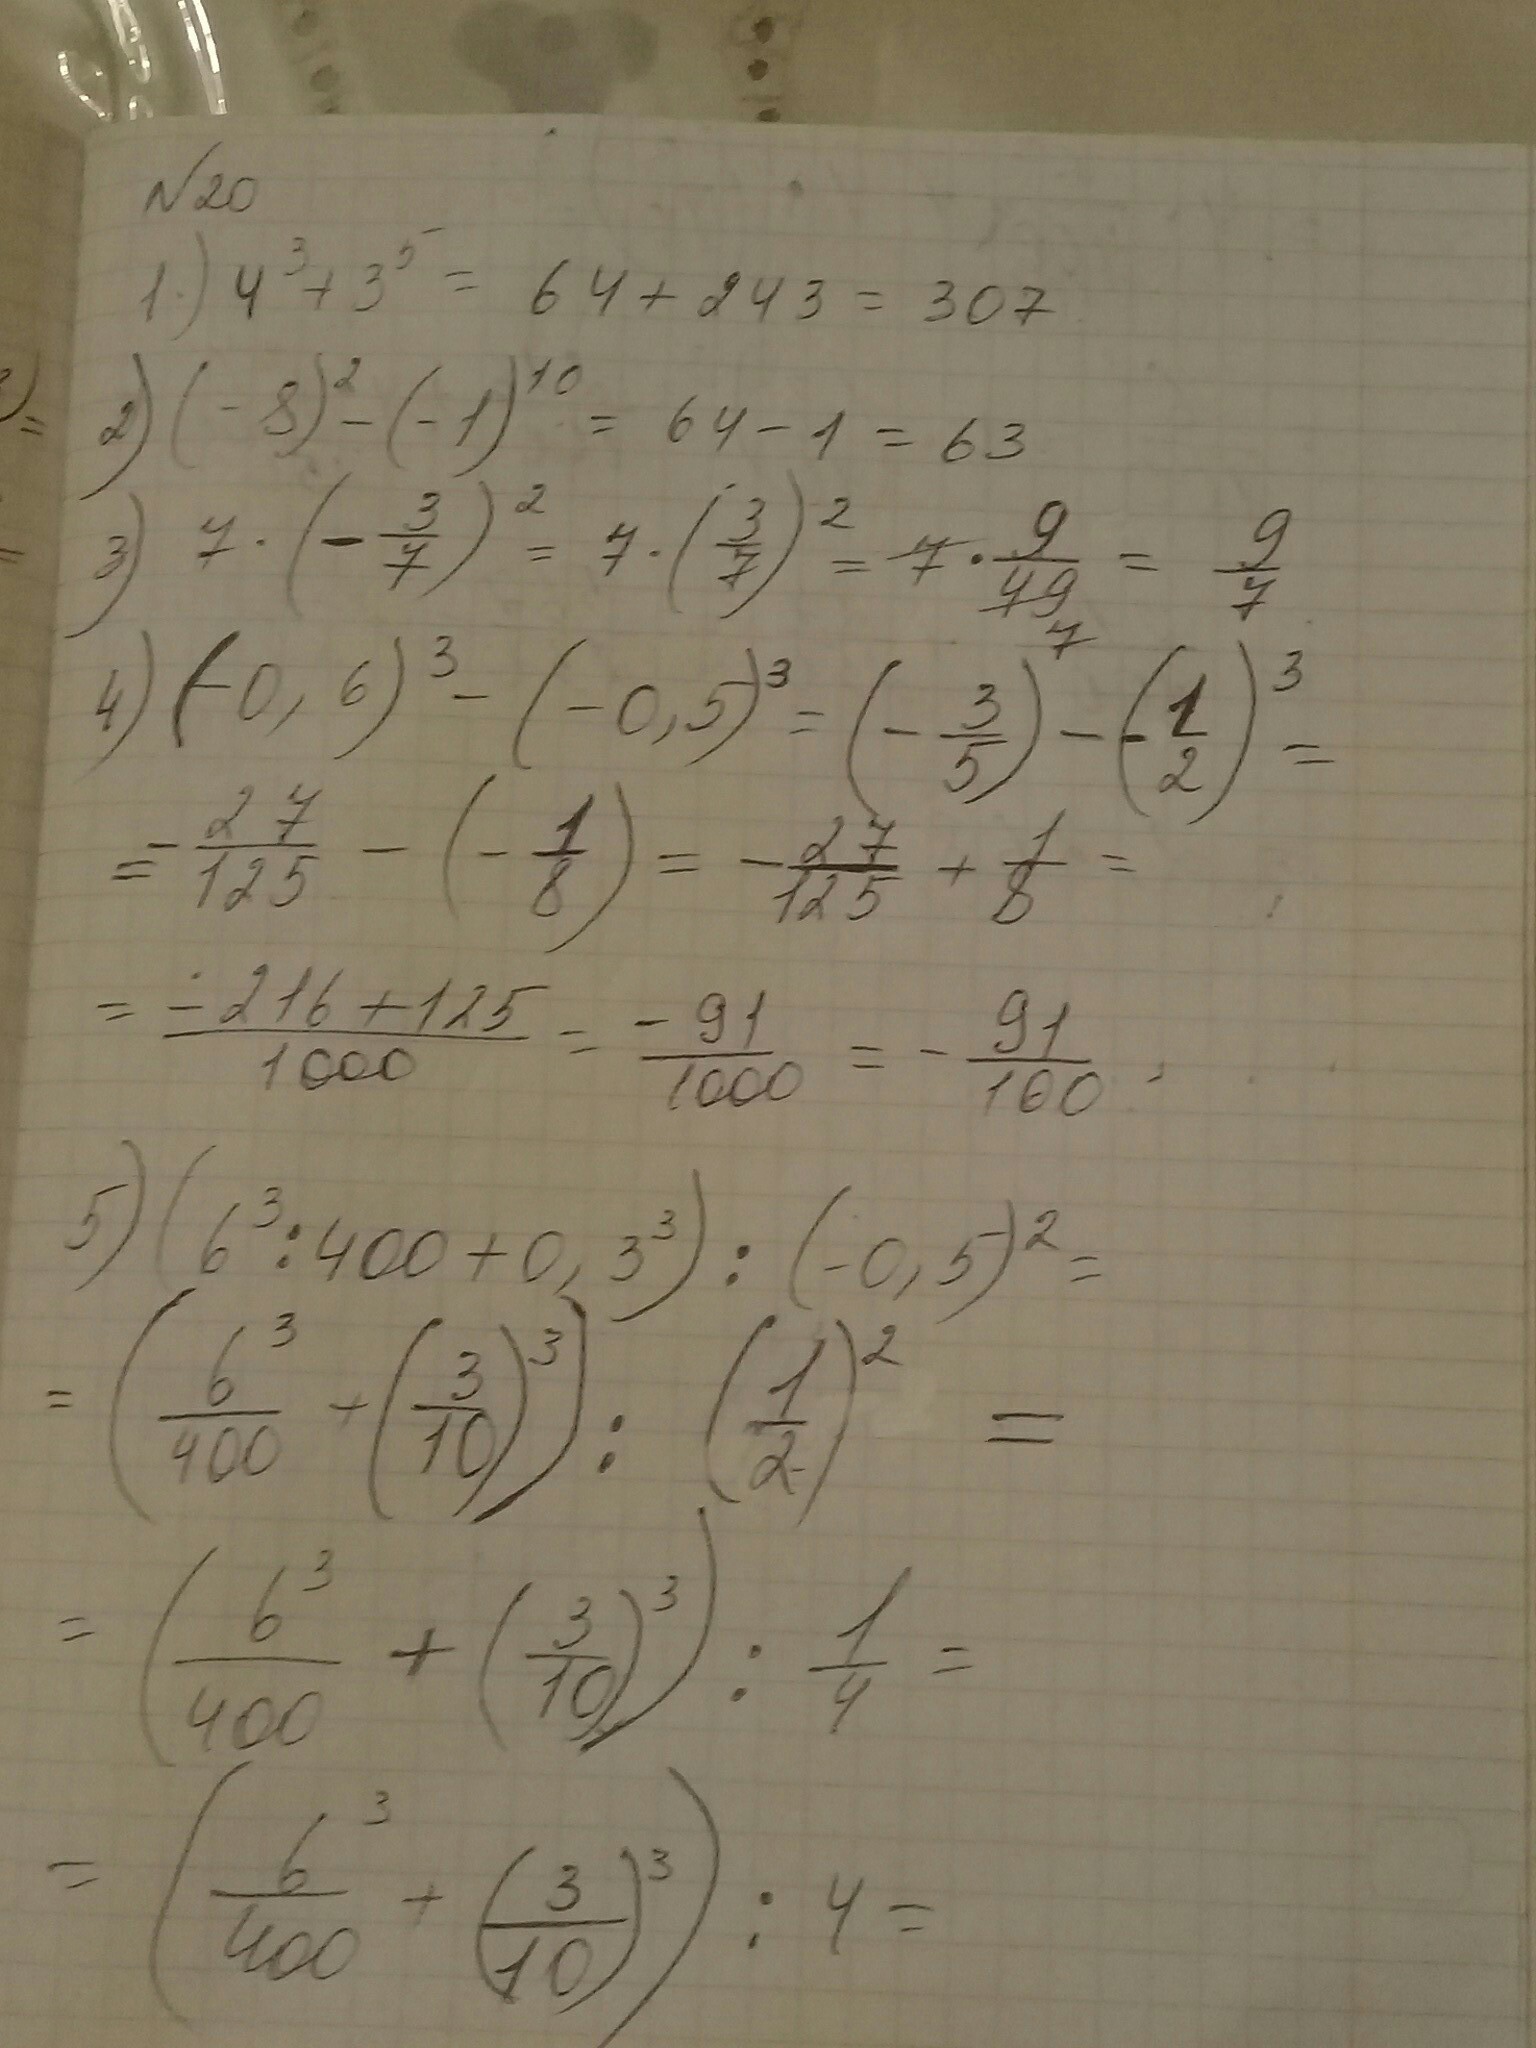 N20
1.) 4³ + 3⁵ = 64 + 243 = 307
2) (-8)² - (-1)¹⁰ = 64 - 1 = 63
3) 7 · (-3/7)² = 7 · (3/7)² = 7 · 9/49 = 9/7
7
4) (-0,6)³ - (-0,5)³ = (-3/5) - -(1/2)³ =
= -27/125 - (-1/8) = -27/125 + 1/8 =
= (-216 + 125)/1000 = -91/1000 = -91/100
5) (6³ : 400 + 0,3³) : (-0,5)² =
= (6³/400 + (3/10)³) : (1/2)² =
= (6³/400 + (3/10)³) : 1/4 =
= (6³/400 + (3/10)³) : 4 =